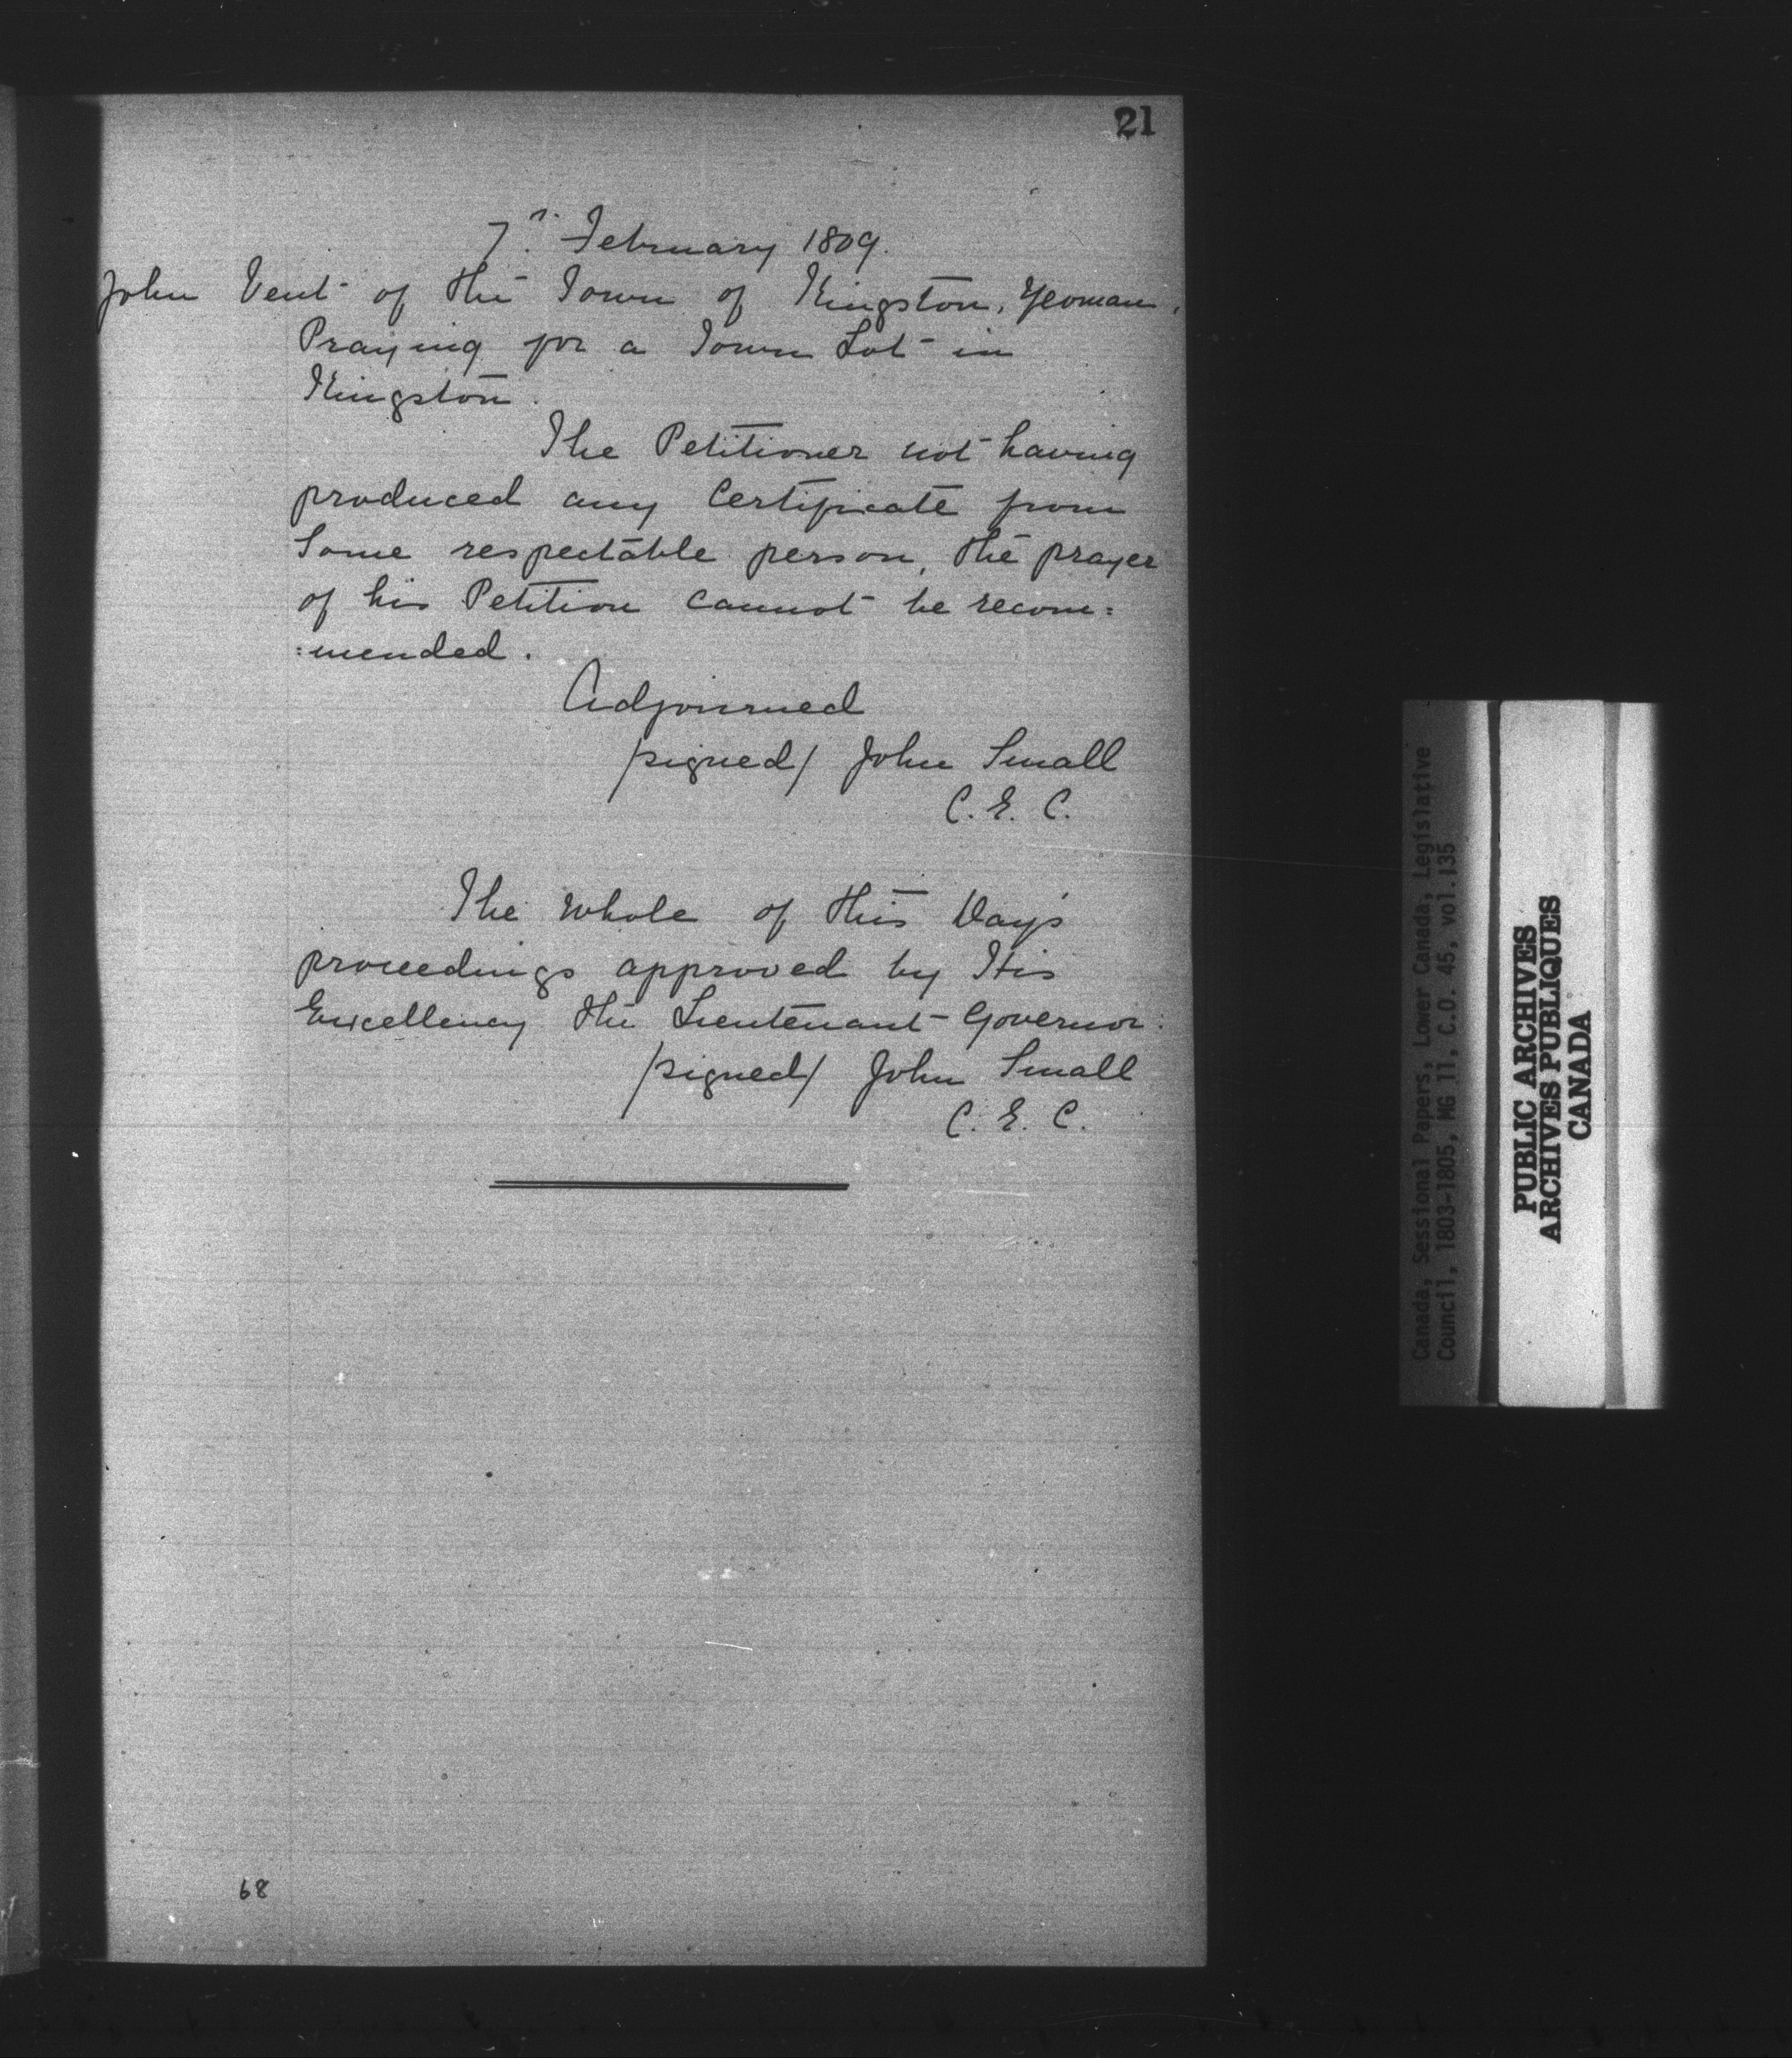 21
7th February 1809.
John Vent of the Town of Kingston, Yeoman.
Praying for a Town Lot in
Kingston.
The Petitioner not having
produced any Certificate from
Some respectable person, the prayer
of his Petition cannot be recom=
=mended.
Adjourned
/signed/ John Small
C. E. C.
The whole of this Day's
proceedings approved by His
Excellency the Lieutenant Governor.
/signed/ John Small
C. E. C.
68
Canada, Sessional Papers, Lower Canada, Legislative
Council, 1803-1805, MG 11, C.O. 45, vol.135
PUBLIC ARCHIVES
ARCHIVES PUBLIQUES
CANADA